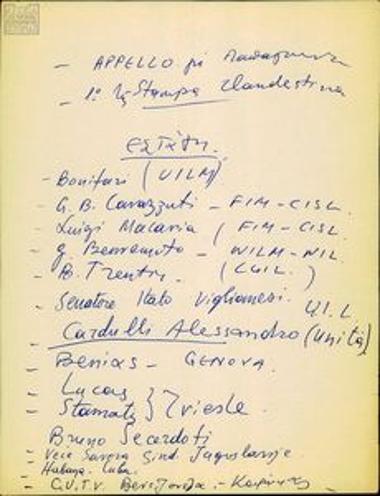 - APPELLO pi
- 1º Stampa Clandestina
ΕΣΤΑΛΗ.
- Bonifazi (UILM)
- G. B. Cavazzuti - FIM-CISL.
- Luigi Macaria (FIM-CISL.
- g. Benvenuto - WILM-NIL
- B. Trentin. (CGIL.)
- Senatore Itato Viglianesi. U.I.L
- Cardulli Alessandro (Unità)
- Benias - GENOVA.
- Lucas
- Stamatis } Trieste.
- Bruno Secardoti
- Vece Saveza Sind. Jugoslavije
- Habana. Cuba.
- C.U.T.V.